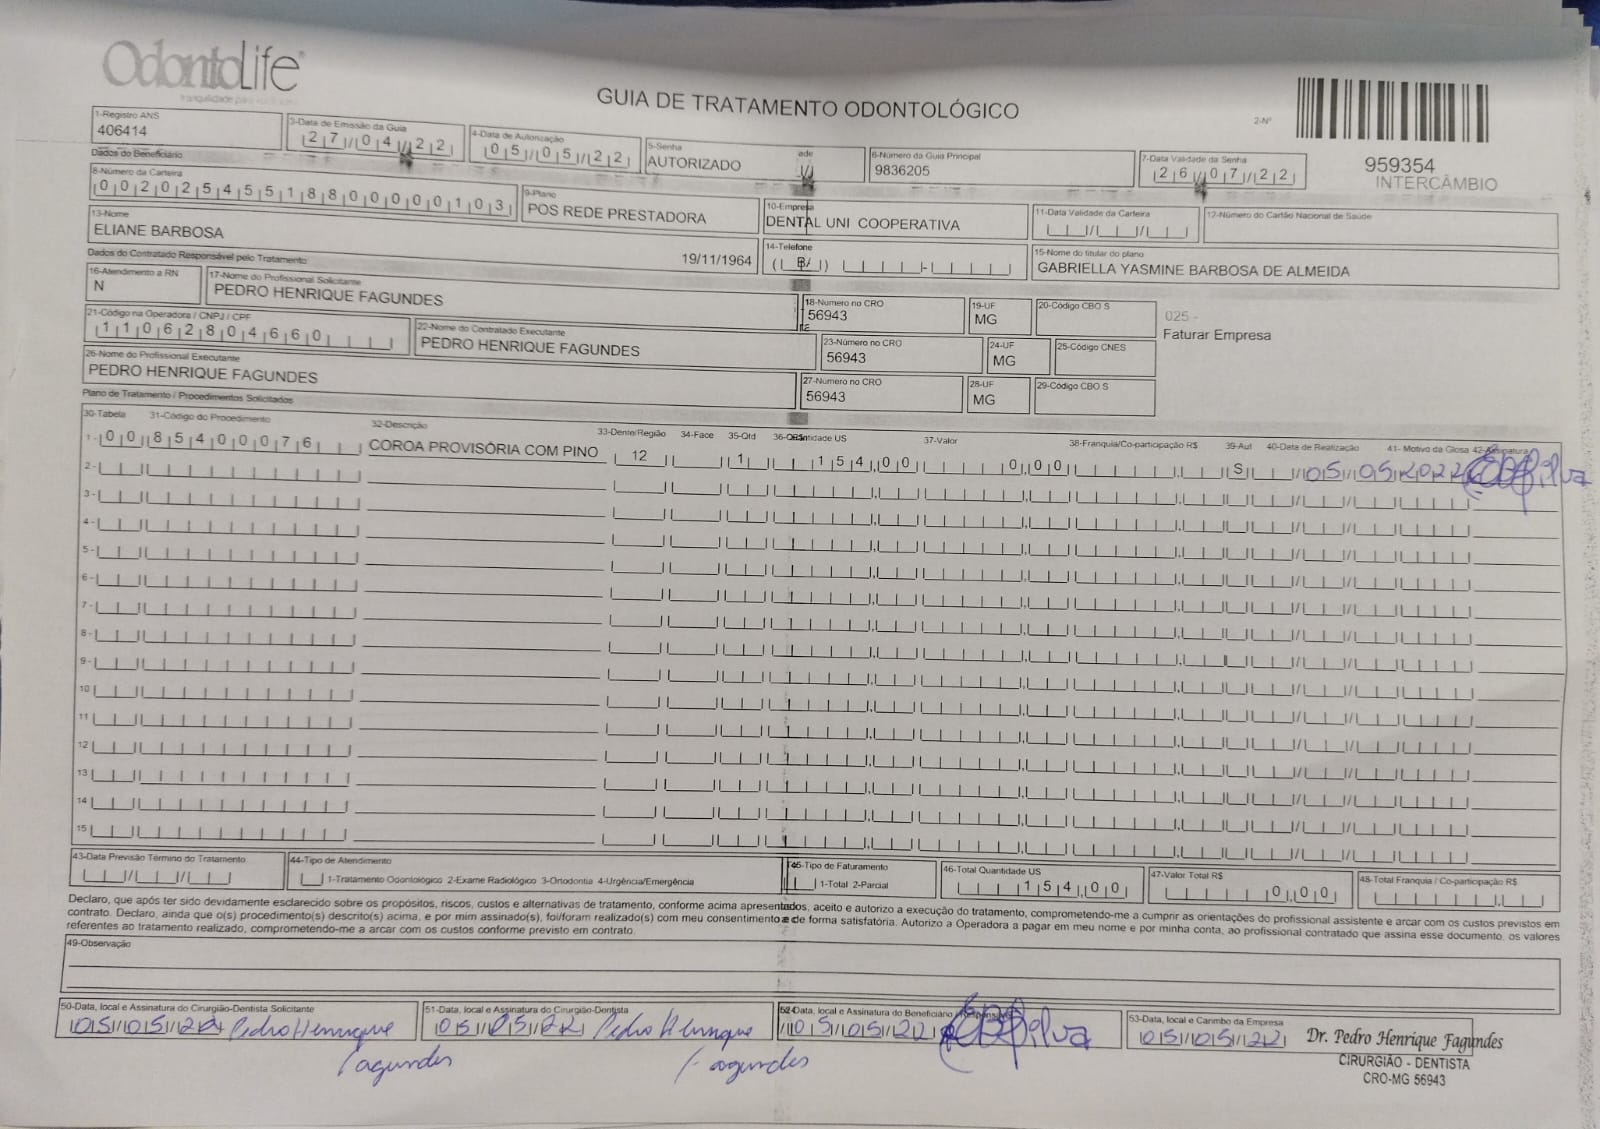 OdontoLife
GUIA DE TRATAMENTO ODONTOLÓGICO
2-Nº
959354
INTERCÂMBIO
1-Registro ANS
406414
3-Data de Emissão da Guia
27/04/22
4-Data de Autorização
05/05/22
5-Senha
AUTORIZADO
6-Número da Guia Principal
9836205
7-Data Validade da Senha
26/07/22
Dados do Beneficiário
8-Número da Carteira
00202545518800000103
9-Plano
POS REDE PRESTADORA
10-Empresa
DENTAL UNI COOPERATIVA
11-Data Validade da Carteira
12-Número do Cartão Nacional de Saúde
13-Nome
ELIANE BARBOSA
19/11/1964
14-Telefone
15-Nome do titular do plano
GABRIELLA YASMINE BARBOSA DE ALMEIDA
Dados do Contratado Responsável pelo Tratamento
16-Atendimento a RN
N
17-Nome do Profissional Solicitante
PEDRO HENRIQUE FAGUNDES
18-Número no CRO
56943
19-UF
MG
20-Código CBO S
025 -
Faturar Empresa
21-Código na Operadora / CNPJ / CPF
11062804660
22-Nome do Contratado Executante
PEDRO HENRIQUE FAGUNDES
23-Número no CRO
56943
24-UF
MG
25-Código CNES
26-Nome do Profissional Executante
PEDRO HENRIQUE FAGUNDES
27-Número no CRO
56943
28-UF
MG
29-Código CBO S
Plano de Tratamento / Procedimentos Solicitados
30-Tabela 31-Código do Procedimento 32-Descrição 33-Dente/Região 34-Face 35-Qtd 36-Quantidade US 37-Valor 38-Franquia/Co-participação R$ 39-Aut 40-Data de Realização 41- Motivo da Glosa 42-Assinatura
1- 00 85400076 COROA PROVISÓRIA COM PINO 12 1 154,00 0,00 S 05/05/2022
2-
3-
4-
5-
6-
7-
8-
9-
10
11
12
13
14
15
43-Data Previsão Término do Tratamento
44-Tipo de Atendimento
1-Tratamento Odontológico 2-Exame Radiológico 3-Ortodontia 4-Urgência/Emergência
45-Tipo de Faturamento
1-Total 2-Parcial
46-Total Quantidade US
154,00
47-Valor Total R$
0,00
48-Total Franquia / Co-participação R$
Declaro, que após ter sido devidamente esclarecido sobre os propósitos, riscos, custos e alternativas de tratamento, conforme acima apresentados, aceito e autorizo a execução do tratamento, comprometendo-me a cumprir as orientações do profissional assistente e arcar com os custos previstos em
contrato. Declaro, ainda que o(s) procedimento(s) descrito(s) acima, e por mim assinado(s), foi/foram realizado(s) com meu consentimento e de forma satisfatória. Autorizo a Operadora a pagar em meu nome e por minha conta, ao profissional contratado que assina esse documento, os valores
referentes ao tratamento realizado, comprometendo-me a arcar com os custos conforme previsto em contrato.
49-Observação
50-Data, local e Assinatura do Cirurgião-Dentista Solicitante
05/05/22 Pedro Henrique
Fagundes
51-Data, local e Assinatura do Cirurgião-Dentista
05/05/22 Pedro Henrique
Fagundes
52-Data, local e Assinatura do Beneficiário / Responsável
05/05/22
53-Data, local e Carimbo da Empresa
05/05/22
Dr. Pedro Henrique Fagundes
CIRURGIÃO - DENTISTA
CRO-MG 56943